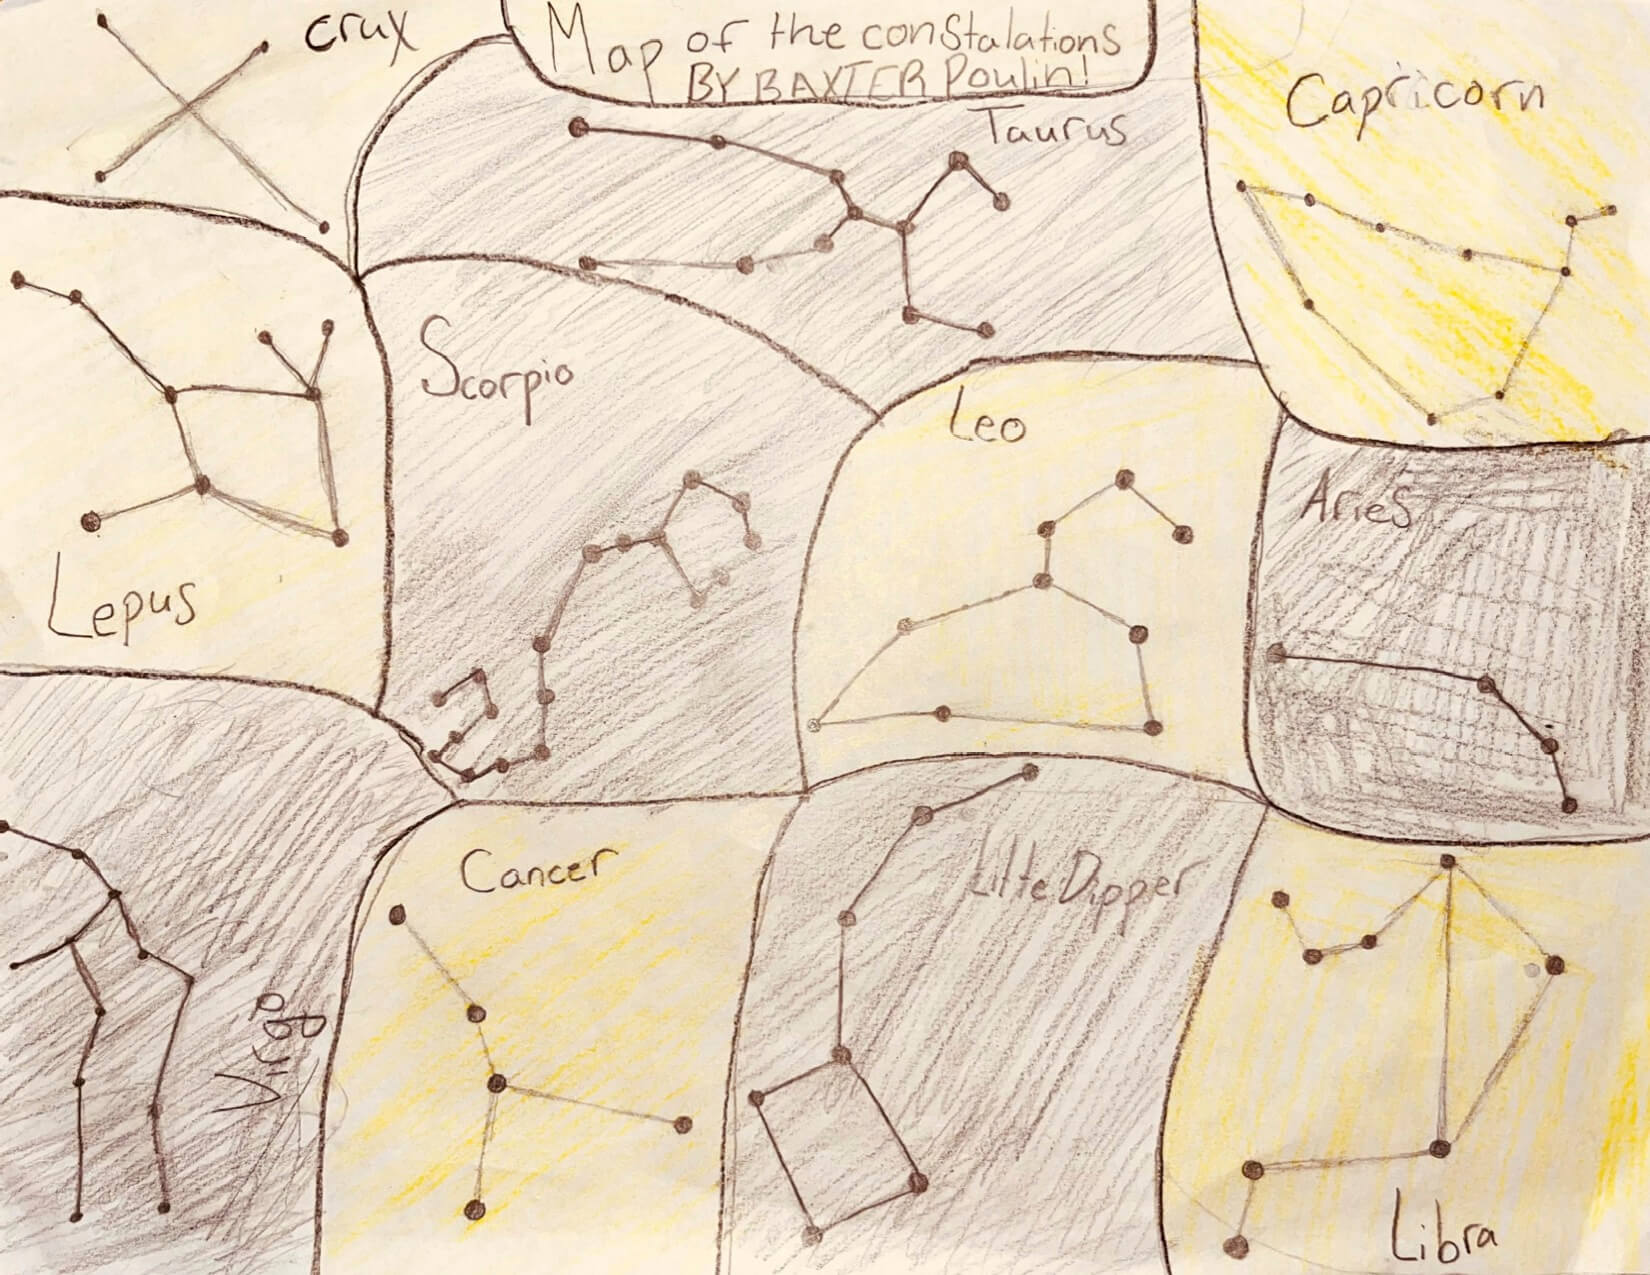 crux
Map of the constalations
BY BAXTER Poulin!
Taurus
Capricorn
Scorpio
Leo
Aries
Lepus
Cancer
Litte Dipper
Virgo
Libra